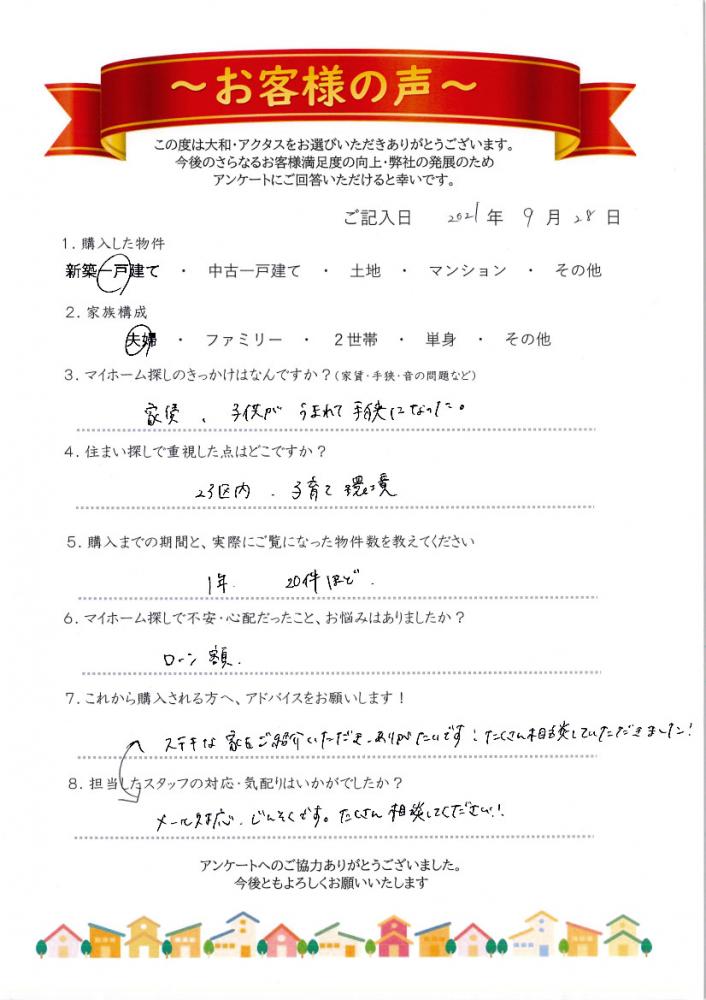 ～お客様の声～
この度は大和・アクタスをお選びいただきありがとうございます。
今後のさらなるお客様満足度の向上・弊社の発展のため
アンケートにご回答いただけると幸いです。
ご記入日 2021年 9月 28日
1. 購入した物件
新築一戸建て ・ 中古一戸建て ・ 土地 ・ マンション ・ その他
2. 家族構成
夫婦 ・ ファミリー ・ 2世帯 ・ 単身 ・ その他
3. マイホーム探しのきっかけはなんですか？(家賃・手狭・音の問題など)
家賃、子供が うまれて手狭になった。
4. 住まい探しで重視した点はどこですか？
23区内 . 子育て環境
5. 購入までの期間と、実際にご覧になった物件数を教えてください
1年. 20件ほど.
6. マイホーム探しで不安・心配だったこと、お悩みはありましたか？
ローン額.
7. これから購入される方へ、アドバイスをお願いします！
ステキな家をご紹介いただき、ありがたいです！たくさん相談していただきました！
8. 担当したスタッフの対応・気配りはいかがでしたか？
メール対応、じんそくです。たくさん相談してください!!
アンケートへのご協力ありがとうございました。
今後ともよろしくお願いいたします